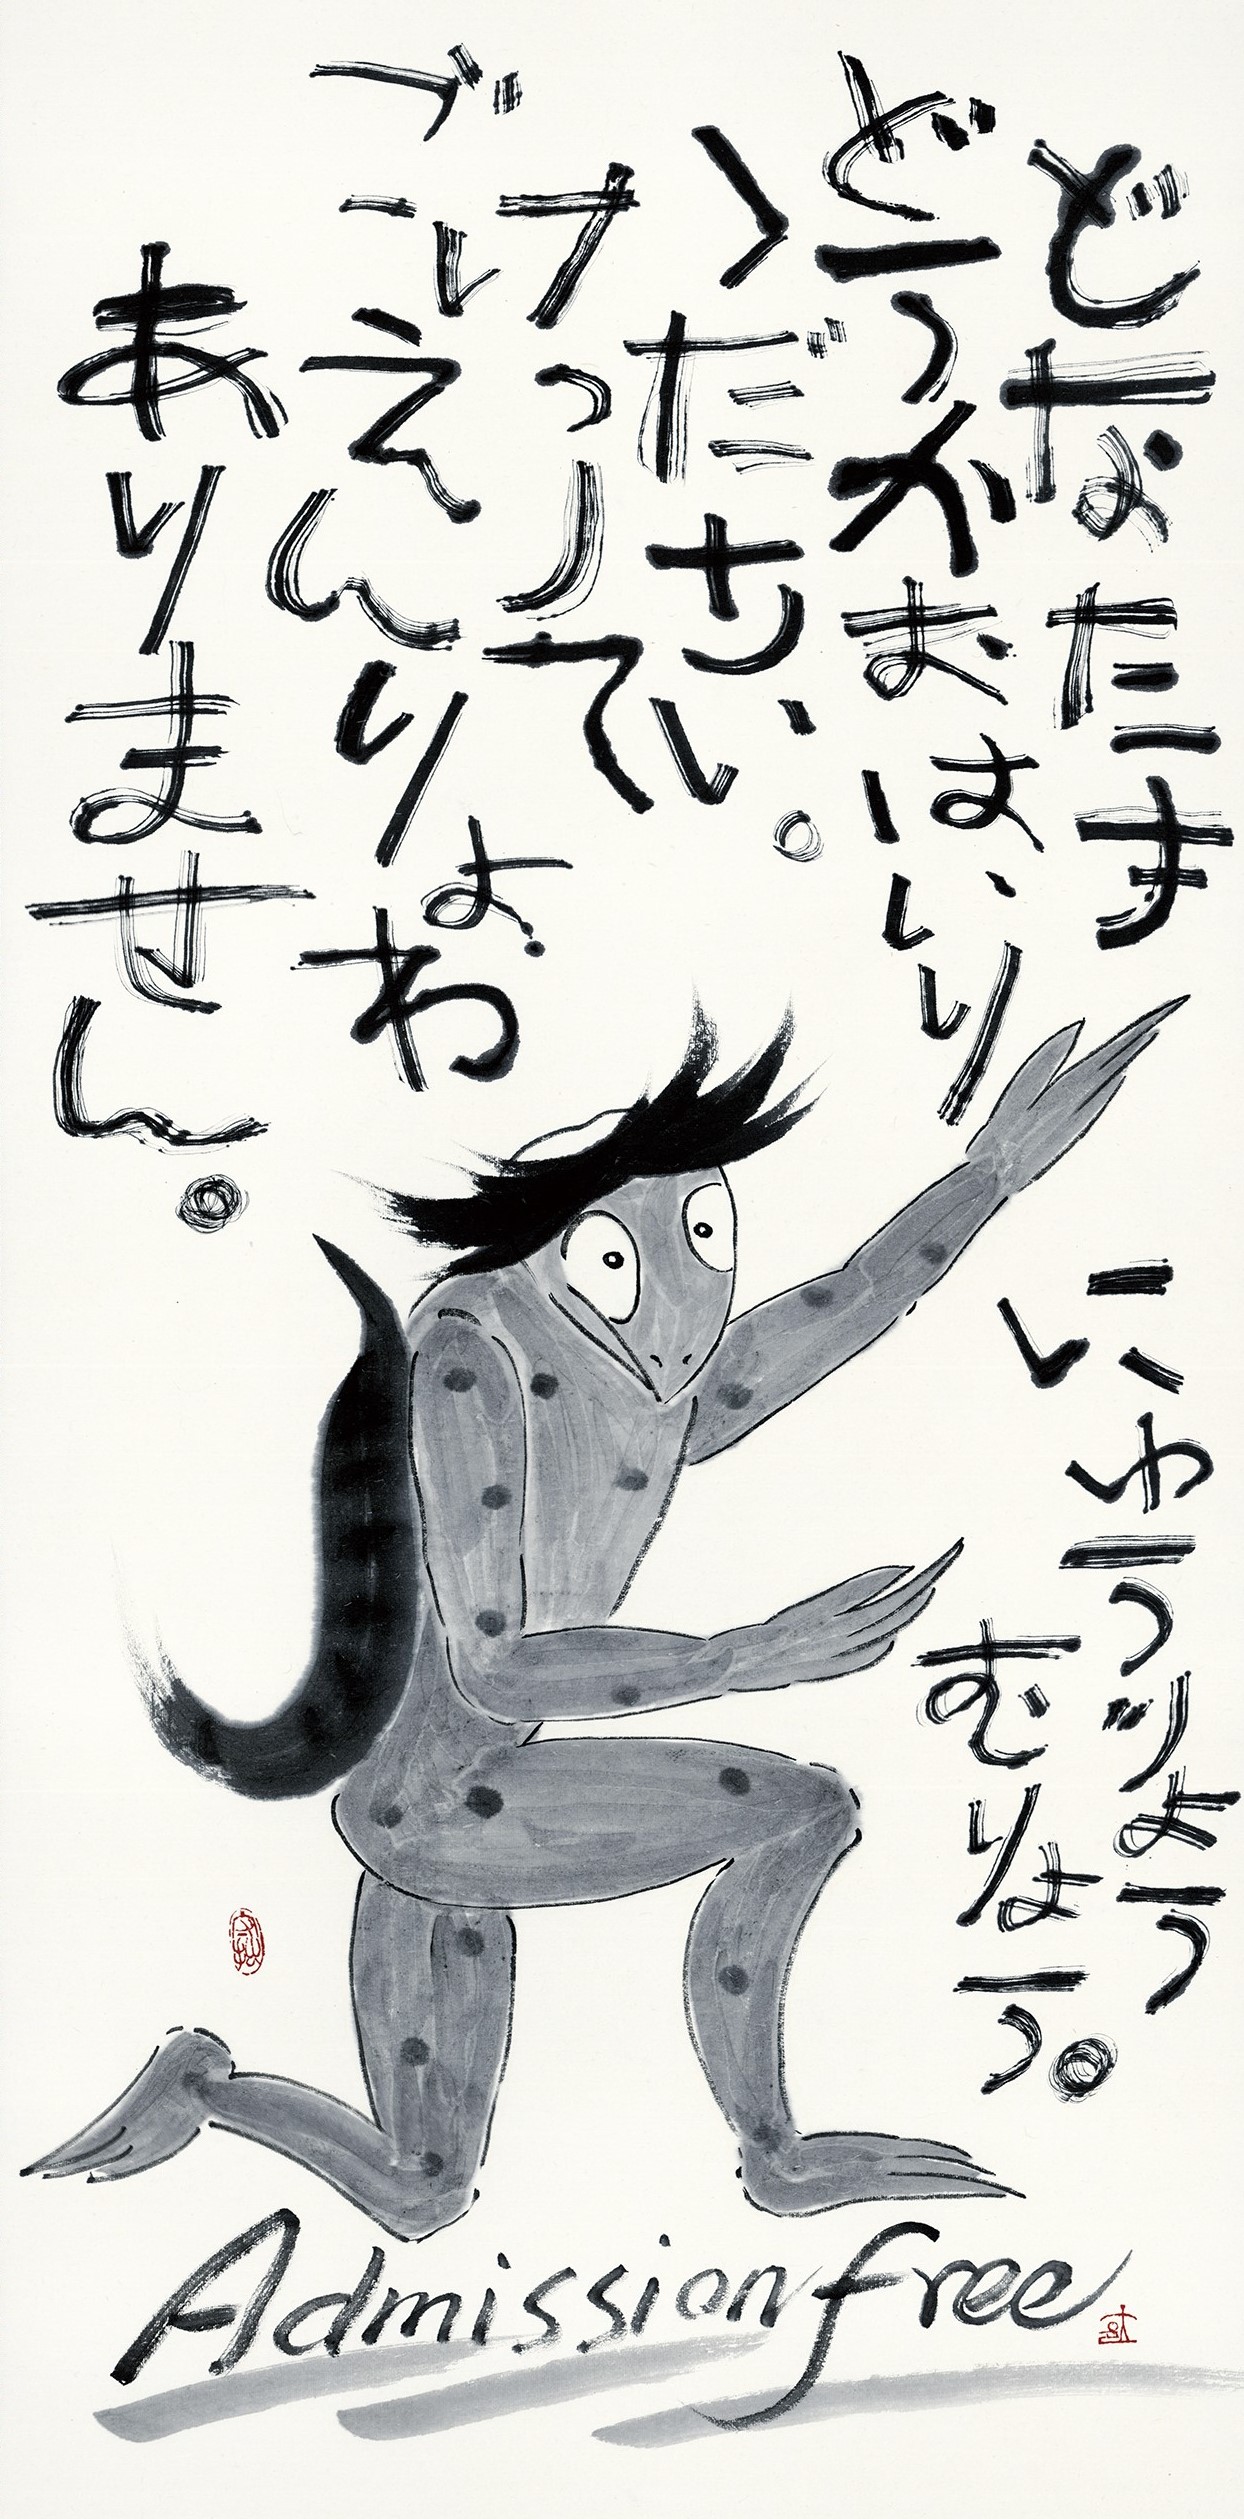 どなたも
どうかおはいり
ください。
けっして
ごえんりょわ
ありません。
にゅうじょう
むりょう。
Admission free